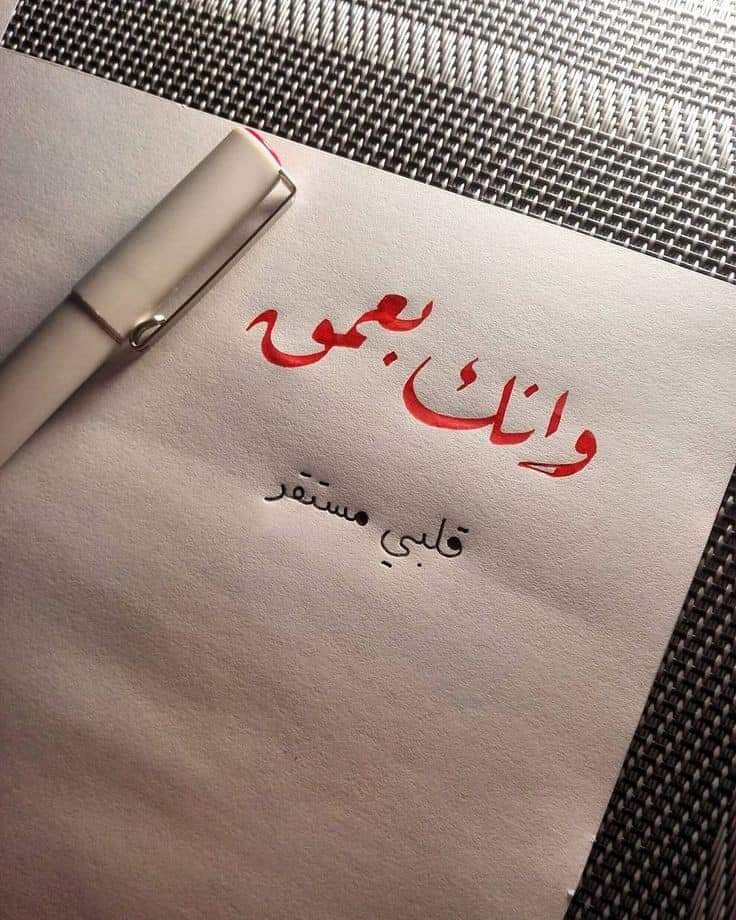 وانك بعمق
قلبي مستقر